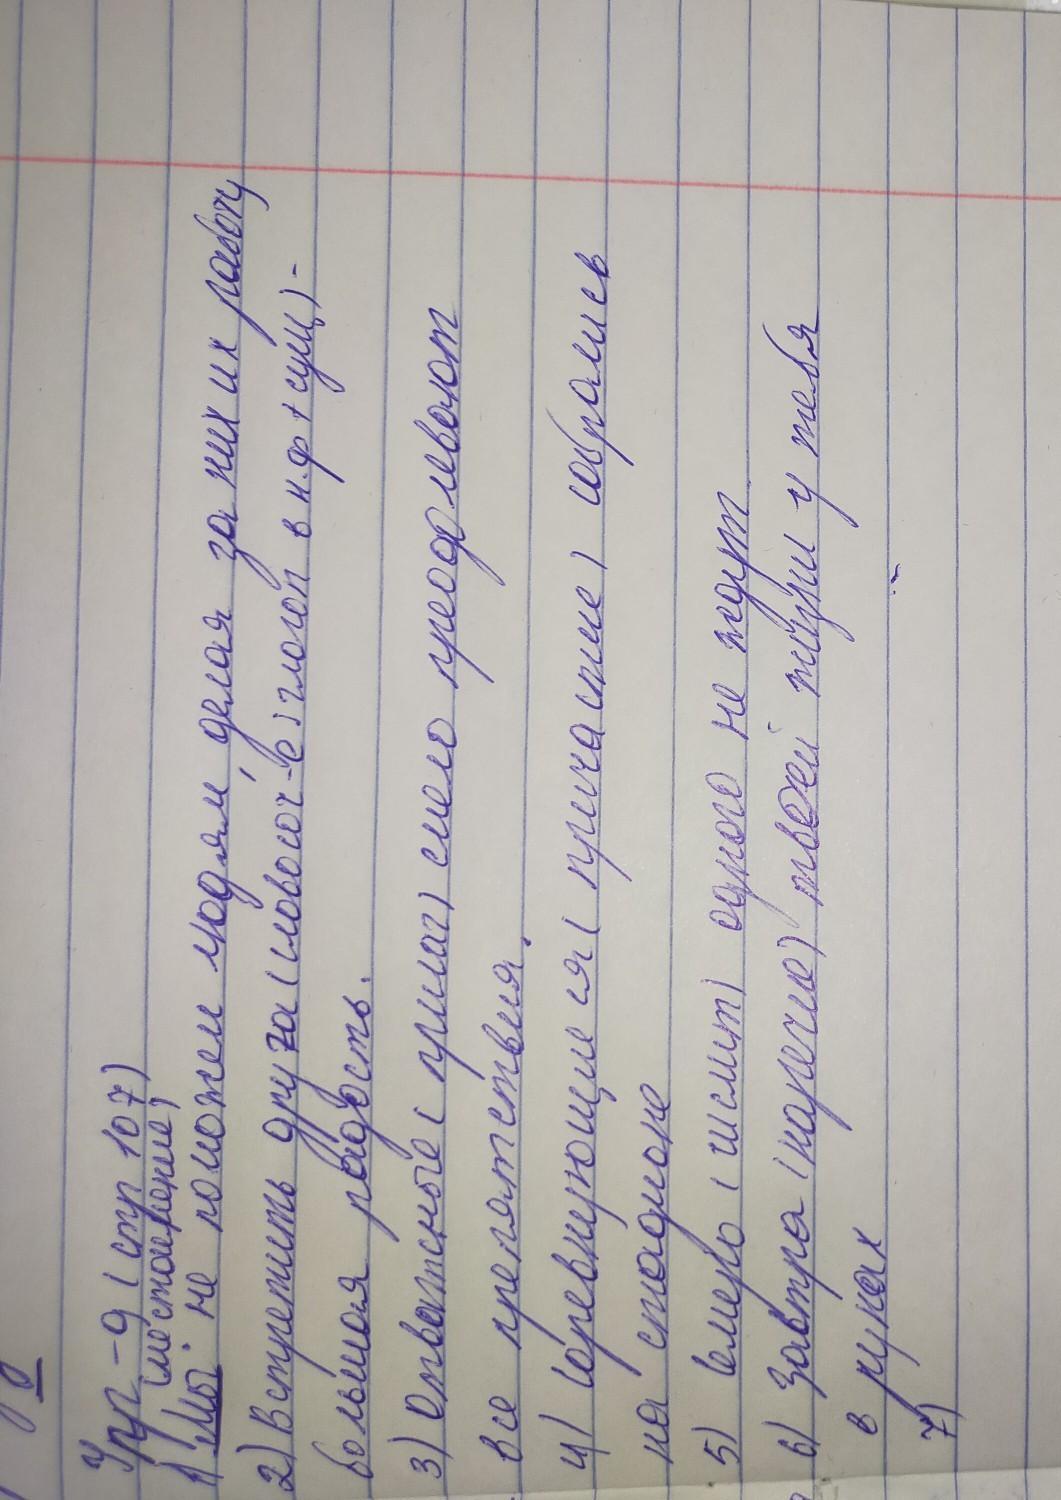 Упр-9 (стр 107)
(местоимение)
1) Мы не поможем людям, делая за них их работу
2) Встретить друга (словосоч-е: глагол в н.ф + сущ) -
большая радость.
3) Отважные (прилаг) смело преодолевают
все препятствия.
4) Соревнующиеся (причастие) собрались
на стадионе
5) Семеро (числит) одного не ждут
6) Завтра (наречие) твоей жизни у тебя
в руках
7)